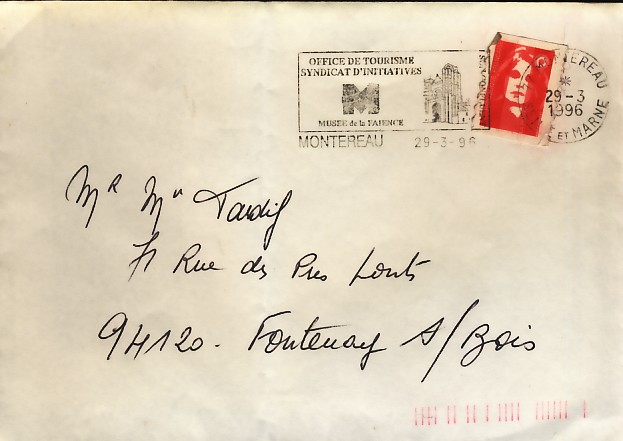 OFFICE DE TOURISME
SYNDICAT D'INITIATIVES
M
MUSEE de la FAIENCE
MONTEREAU 29-3-96
MONTEREAU
29-3
1996
ET MARNE
Mr Mm Tardif
Rue des Pres Lonts
94120. Fontenay s/Bois